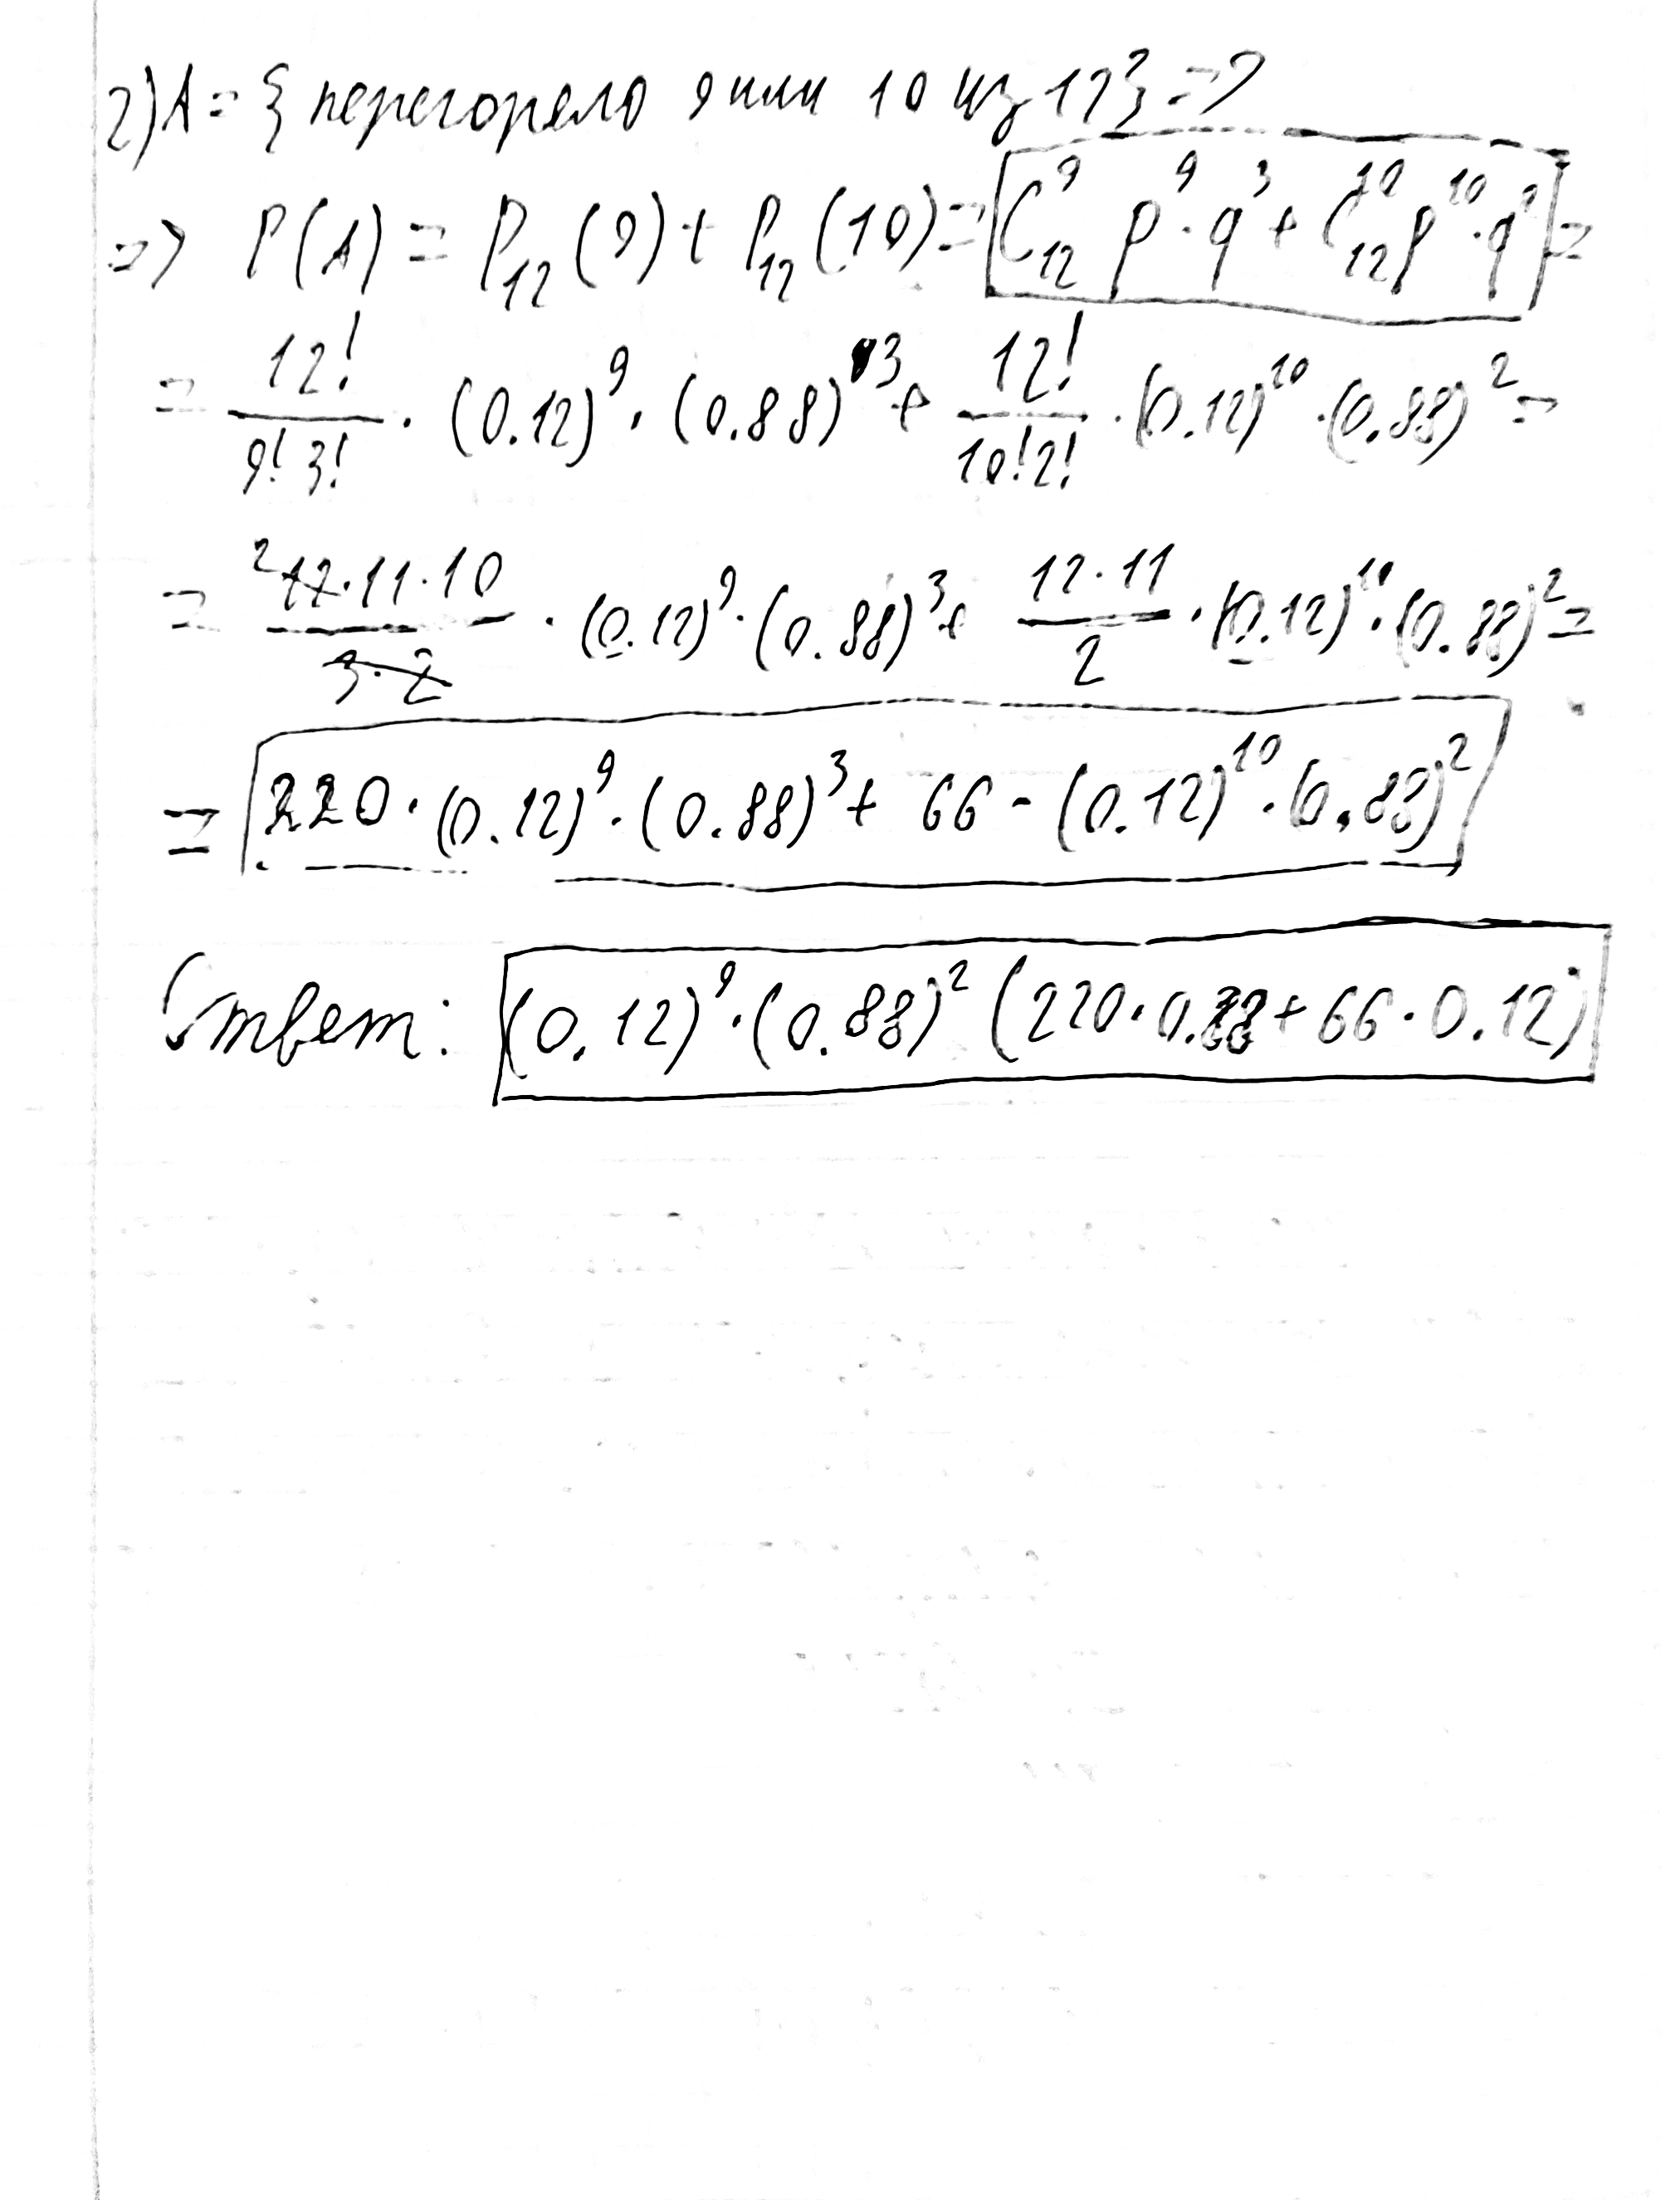 2) A = { перегорело 9 или 10 из 12} =>
=> P(A) = P₁₂(9) + P₁₂(10) = C₁₂⁹ p⁹·q³ + C₁₂¹⁰ p¹⁰·q² =
= 12!/(9!3!) · (0.12)⁹ · (0.88)³ + 12!/(10!2!) · (0.12)¹⁰ · (0.88)² =
= 12·11·10/(3·2) · (0.12)⁹ · (0.88)³ + 12·11/2 · (0.12)¹⁰ · (0.88)² =
= 220 · (0.12)⁹ · (0.88)³ + 66 · (0.12)¹⁰ · (0.88)²
Ответ: (0.12)⁹ · (0.88)² (220 · 0.88 + 66 · 0.12)